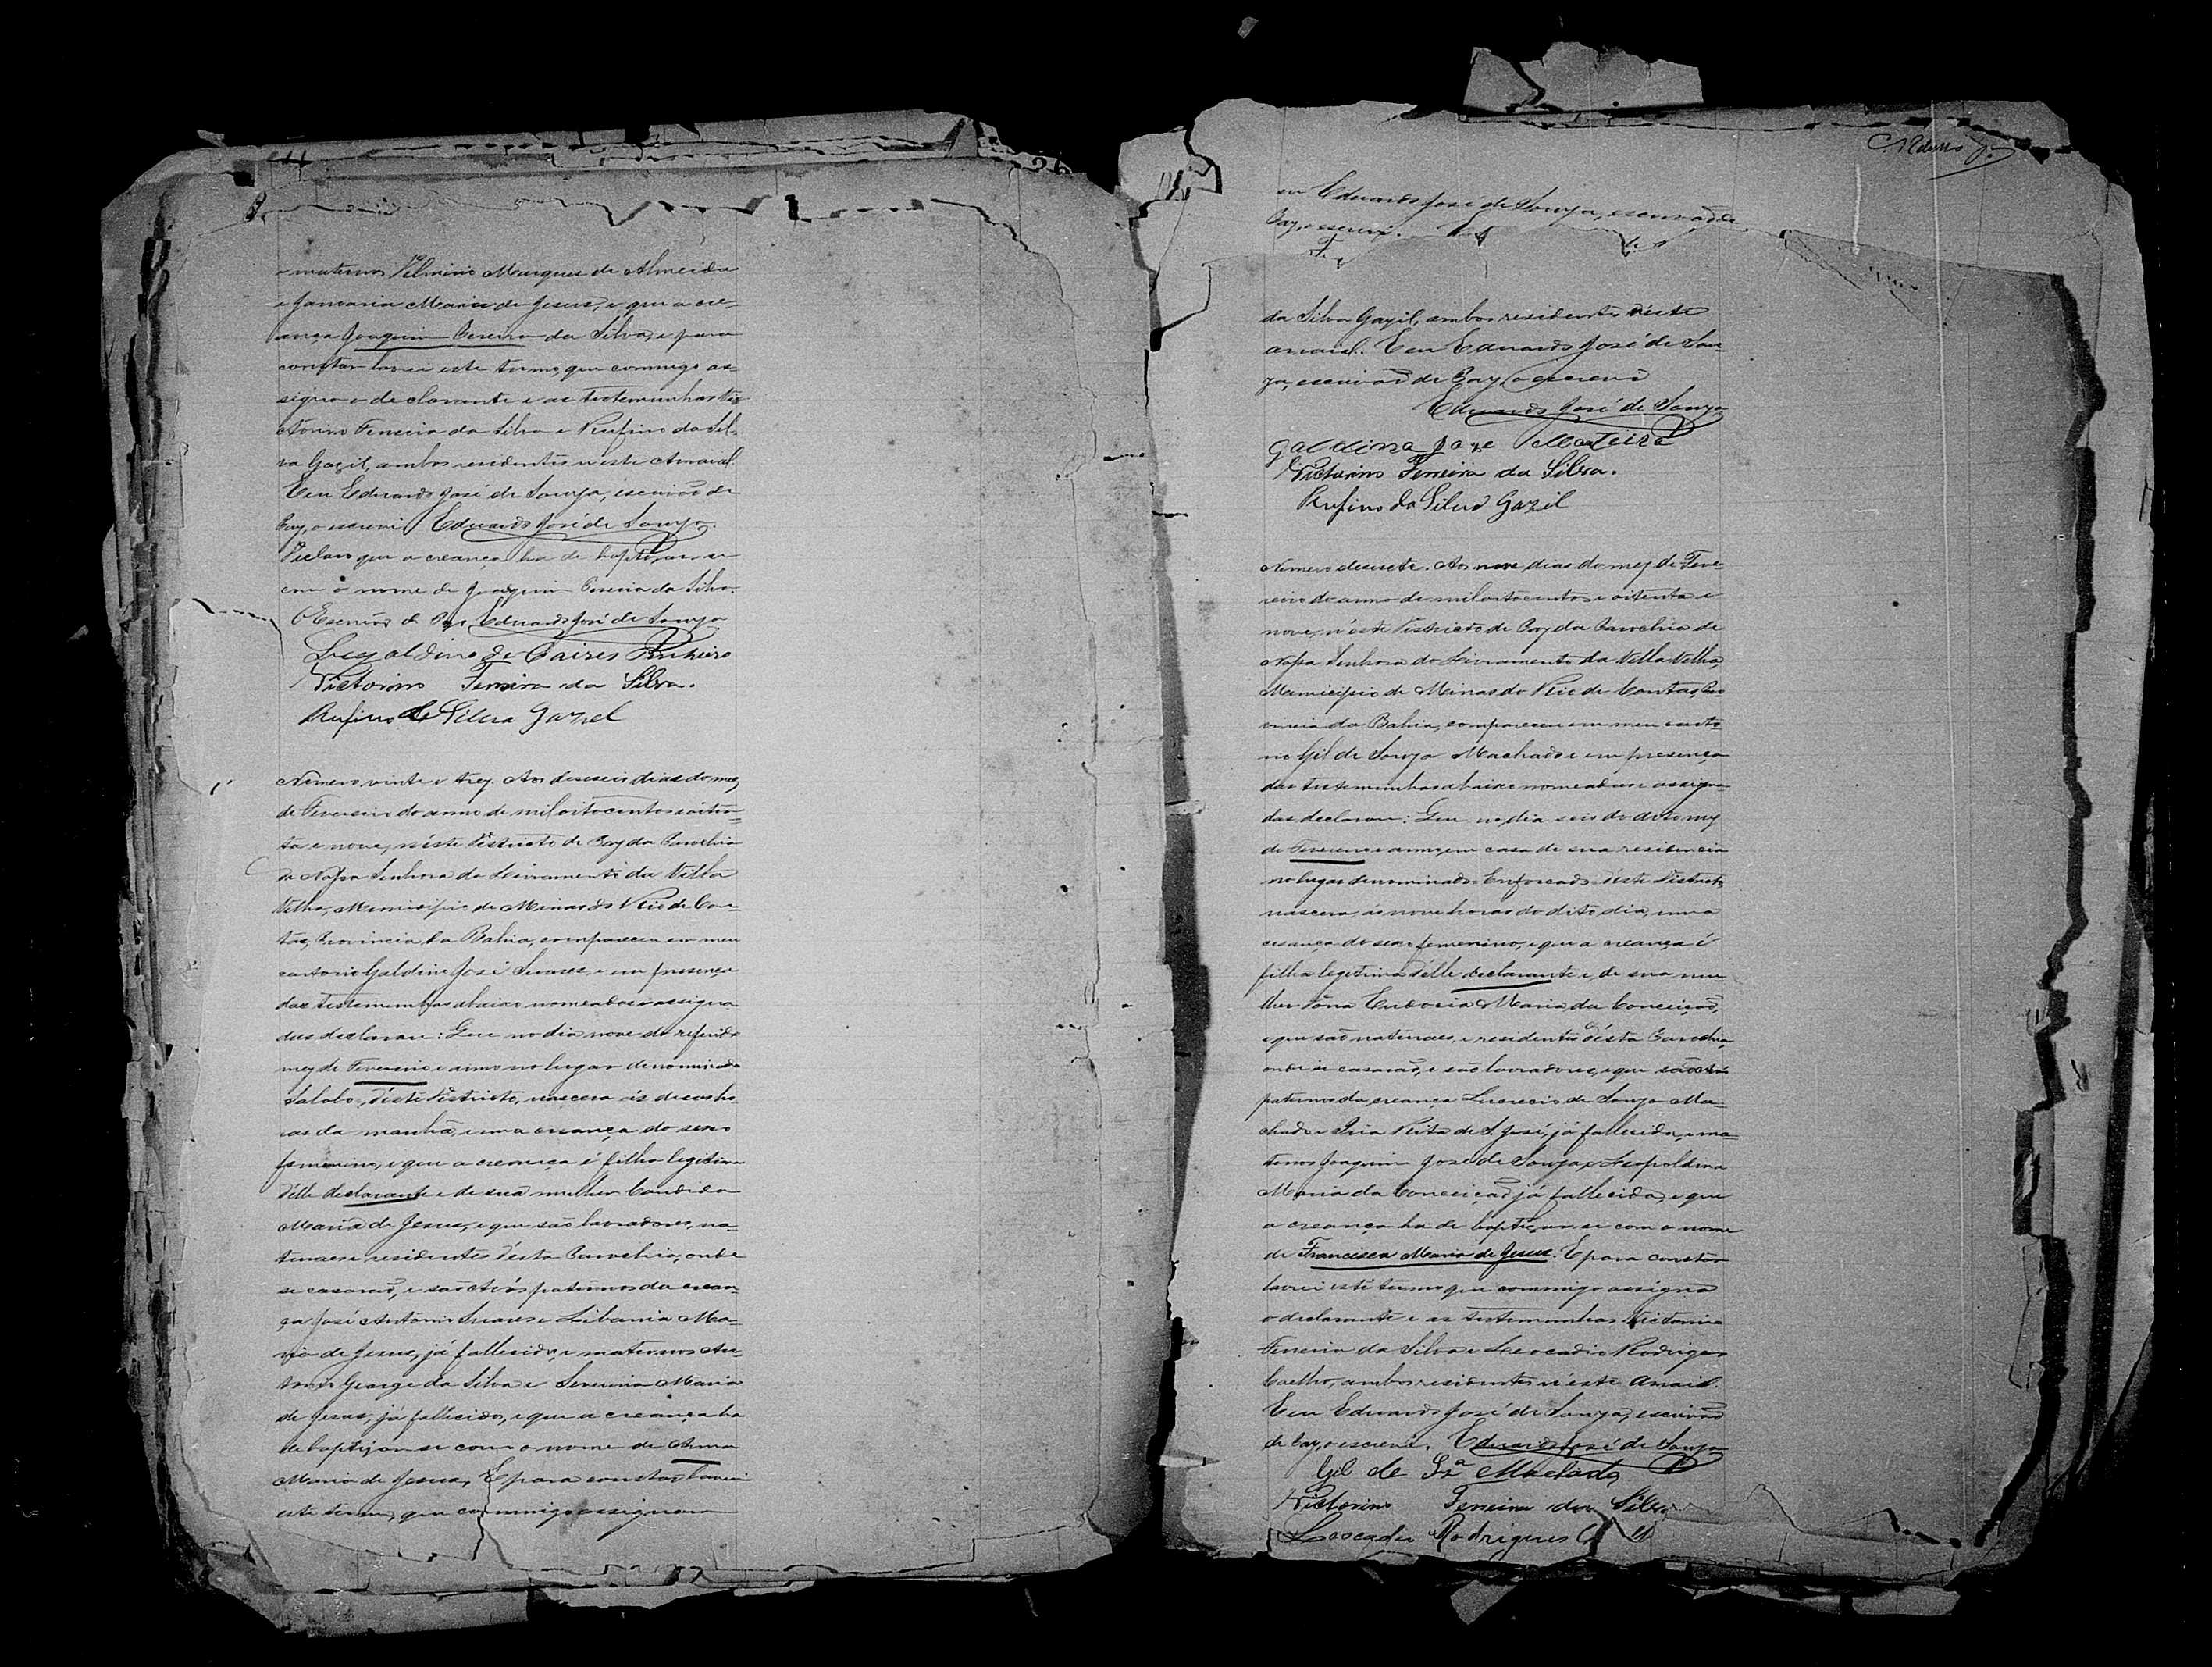 e maternos Belmiro Marques de Almeida
e Januaria Maria de Jesus, e que a cre-
ança Joaquim Pereira da Silva, e para
constar lavrei este termo, que commigo as-
signa o declarante e as testemunhas Vic-
torino Ferreira da Silva e Rufino da Sil-
va Gazil, ambos residentes neste Arraial.
E eu Eduardo José de Souza, escrivão de
Paz, o escrevi Eduardo José de Souza.
Declaro que a creança ha de baptizar-se
com o nome de Joaquim Pereira da Silva.
O Escrivão de Paz Eduardo José de Souza
de Paires
Victorino Ferreira da Silva.
Rufino da Silva Gazil
Numero vinte e trez. Aos deseseis dias do mez
de Fevereiro do anno de mil oitocentos e oiten-
ta e nove, n'este Districto de Paz da Parochia
de Nossa Senhora do Livramento da Villa
Velha, Municipio de Minas do Rio de Con-
tas, Provincia da Bahia, compareceu em meu
cartorio Galdino José Soares e em presença
das testemunhas abaixo nomeadas e assigna
das declarou: Que no dia nove do referido
mez de Fevereiro e anno no lugar denominado
Salobo, d'este Districto, nascera ás deis ho
ras da manhã, uma creança do sexo
femenino, e que a creança é filha legitima
d'elle declarante e de sua mulher Candida
Maria de Jesus, e que são lavradores, na-
turaes e residentes d'esta Parochia, onde
se casarão, e são Avós paternos da crean-
ça José Antonio Soares e Libania Ma-
ria de Jesus, já fallecidos, e maternos An-
tonio George da Silva e Severina Maria
de Jesus, já fallecidos, e que a creança ha
de baptizar-se com o nome de Anna
Maria de Jesus. E para constar lavrei
este termo, que commigo assignam
eu Eduardo José de Souza, escrivão de
Paz, o escrevi.
da Silva Gazil, ambos residentes n'este
arraial. E eu Eduardo José de Sou-
za, escrivão de Paz, o escrevi
Eduardo José de Souza
Galdino Joze
Victorino Ferreira da Silva.
Rufino da Silva Gazil
Numero desesete. Aos nove dias do mez de Feve-
reiro do anno de mil oitocentos e oitenta e
nove, n'este Districto de Paz da Parochia de
Nossa Senhora do Livramento da Villa Velha,
Municipio de Minas do Rio de Contas, Pro
vincia da Bahia, compareceu em meu carto
rio Gil de Souza Machado e em presença
das testemunhas abaixo nomeadas e assigna
das declarou: Que no dia seis do dito mez
de Fevereiro e anno, em casa de sua residencia
no lugar denominado Enforcado d'este Districto
nascera, ás nove horas do dito dia, uma
creança do sexo femenino, e que a creança é
filha legitima d'elle declarante e de sua mu-
lher Dona Eudoxia Maria da Conceição,
e que são naturaes, e residentes d'esta Parochia,
onde se casarão, e são lavradores, e que são Avós
paternos da creança Lucrecio de Souza Ma-
chado e Anna Rita de S. José, já fallecida, e ma-
ternos Joaquim José de Souza e Leopoldina
Maria da Conceição já fallecida, e que
a creança ha de baptizar-se com o nome
de Francisca Maria de Jesus. E para constar
lavrei este termo que commigo assigna
o declarante e as testemunhas Victorino
Ferreira da Silva e Leocadio Rodrigues
Coelho, ambos residentes n'este Arraial.
E eu Eduardo José de Souza, escrivão
de Paz, o escrevi. Eduardo José de Souza
Gil de Sza Machado
Victorino Ferreira da Silva
Leocadio Rodrigues